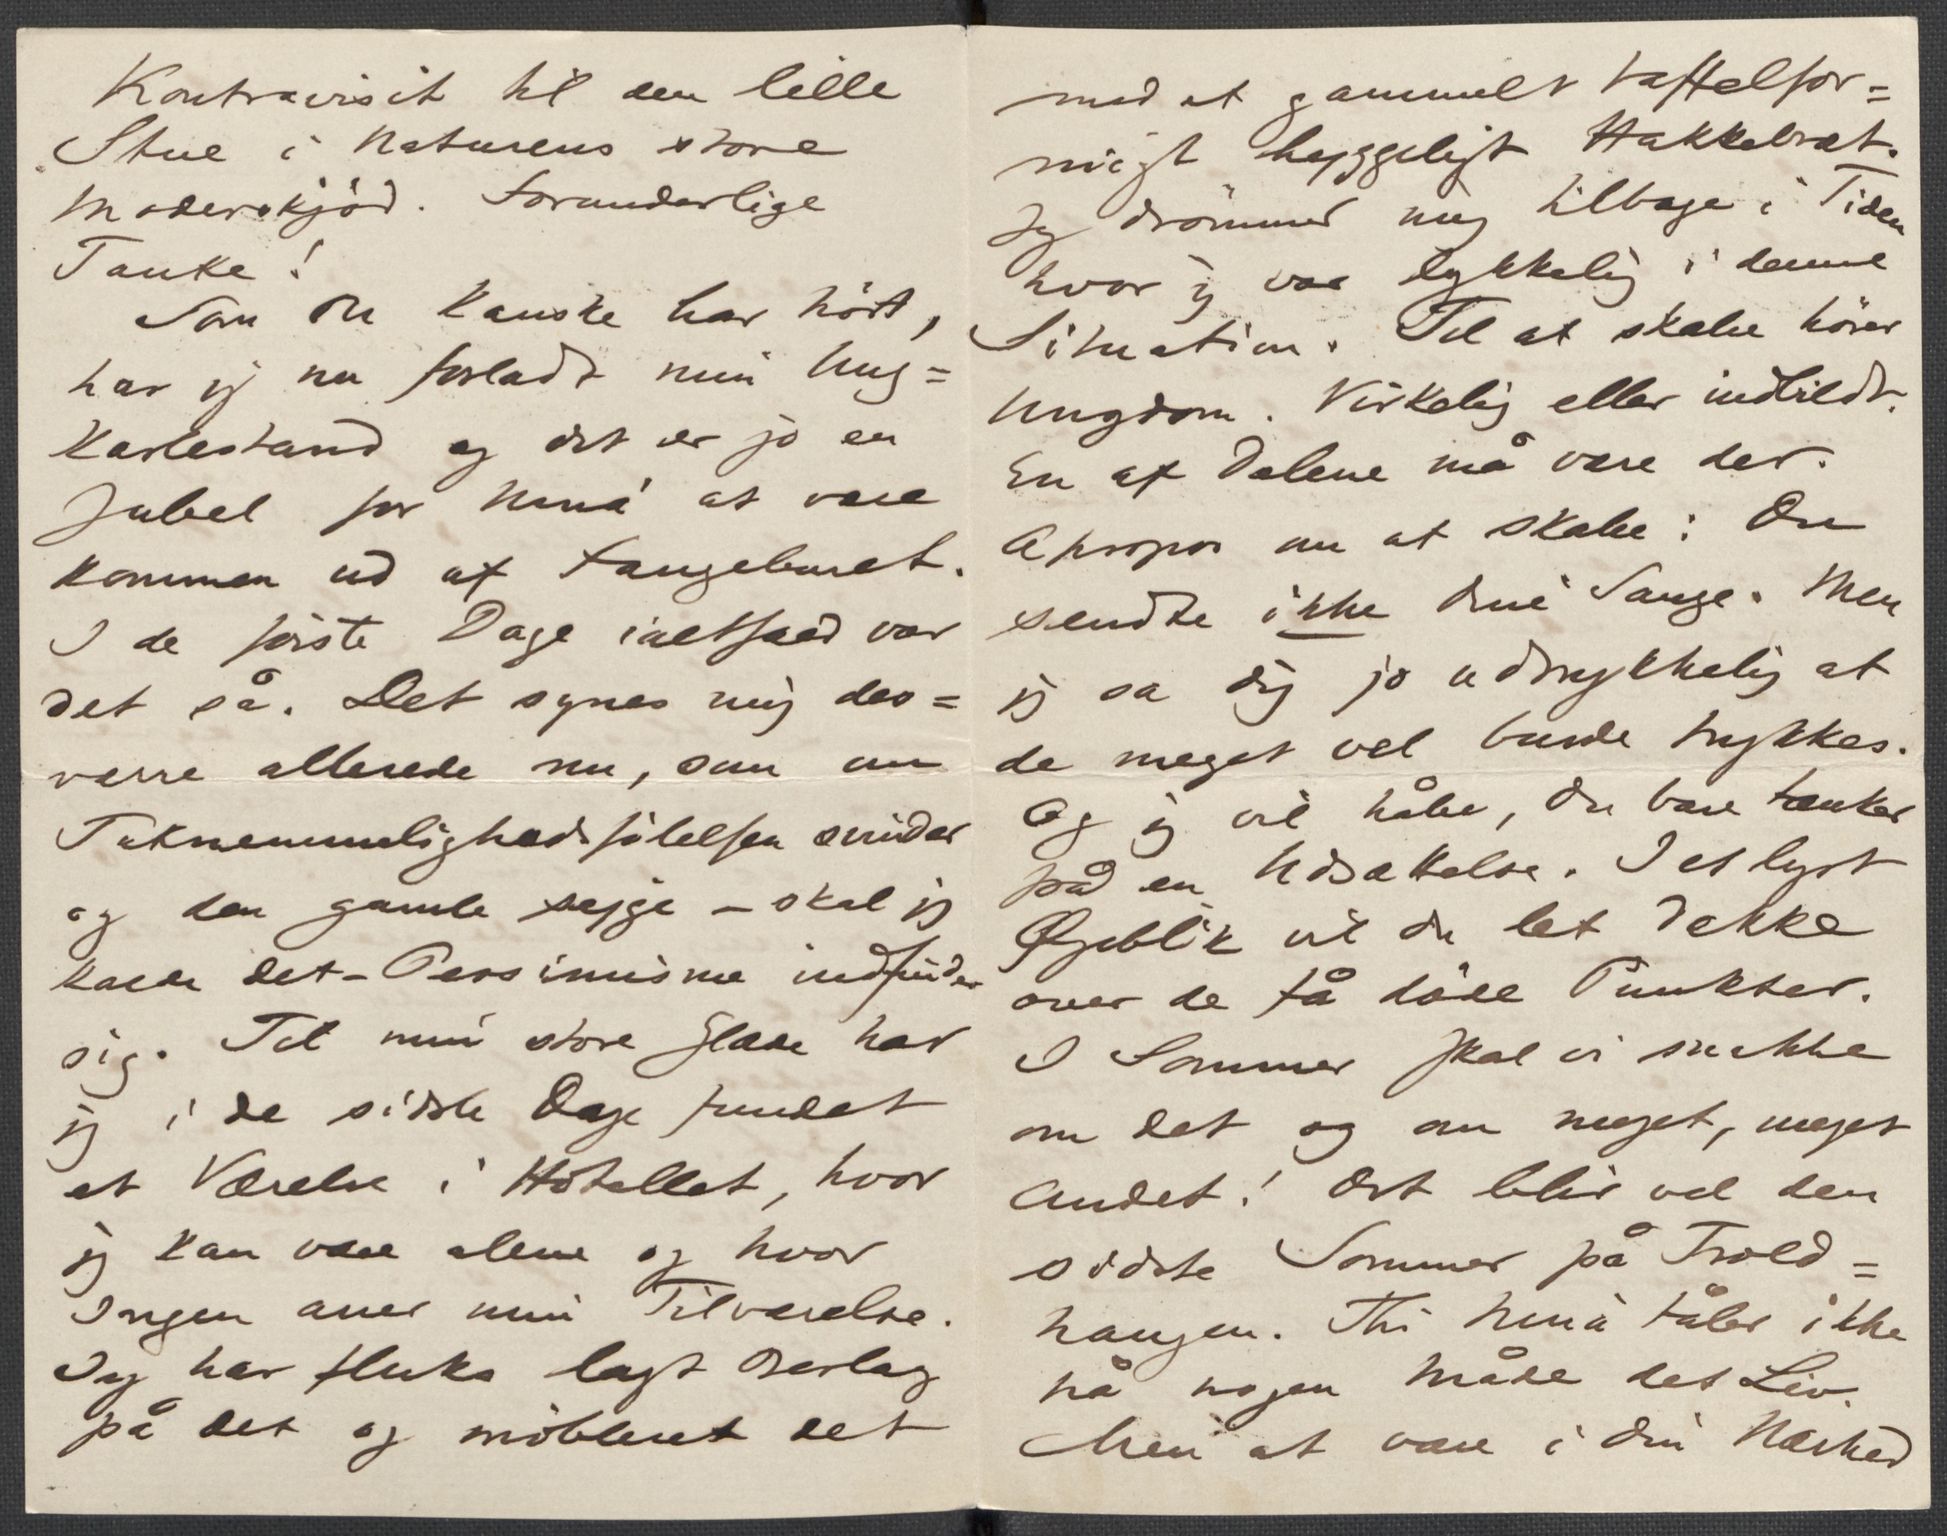 Kontravisit til den lille
Stue i Naturens store
Moderskjød. Forunderlige
Tanke!
Som Du kanske har hört,
har jeg nu forladt min Ung=
karlestand og det er jo en
Jubel for Nina at være
kommen ud af Fangeburet.
I de første Dage ialtfald var
det så. Det synes mig des=
værre allerede nu, som om
Taknemmelighedsfølelsen svinder
og den gamle sejge – skal jeg
kalde det – Pessimisme indfinder
sig. Til min store Glæde har
jeg i de sidste Dage fundet
et Værelse i Hôtellet, hvor
jeg kan være alene og hvor
Ingen aner min Tilværelse.
Jeg har fluks lagt Beslag
på det og möbleret det
med et gammelt taffelfor=
migt hyggeligt Hakkebræt.
Jeg drömmer mig tilbage i Tiden
hvor jeg var lykkelig i denne
Situation. Til at skabe hörer
Ungdom. Virkelig eller indbildt.
En af Delene må være der.
Apropos om at skabe: Du
sendte ikke dine Sange. Men
jeg sa dig jo udtrykkelig at
de meget vel burde trykkes.
Og jeg vil håbe, Du bare tænker
på en Udsættelse. I et lyst
Øjeblik vil du let dække
over de få döde Punkter.
I Sommer skal vi snakke
om det og om meget, meget
Andet! Det blir vel den
sidste Sommer på Trold=
haugen. Thi Nina tåler ikke
på nogen Måde det Liv.
Men at være i din Nærhed